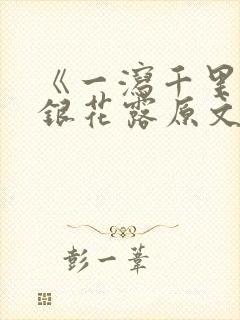 《一泻千里
银花露原文
彭一苇